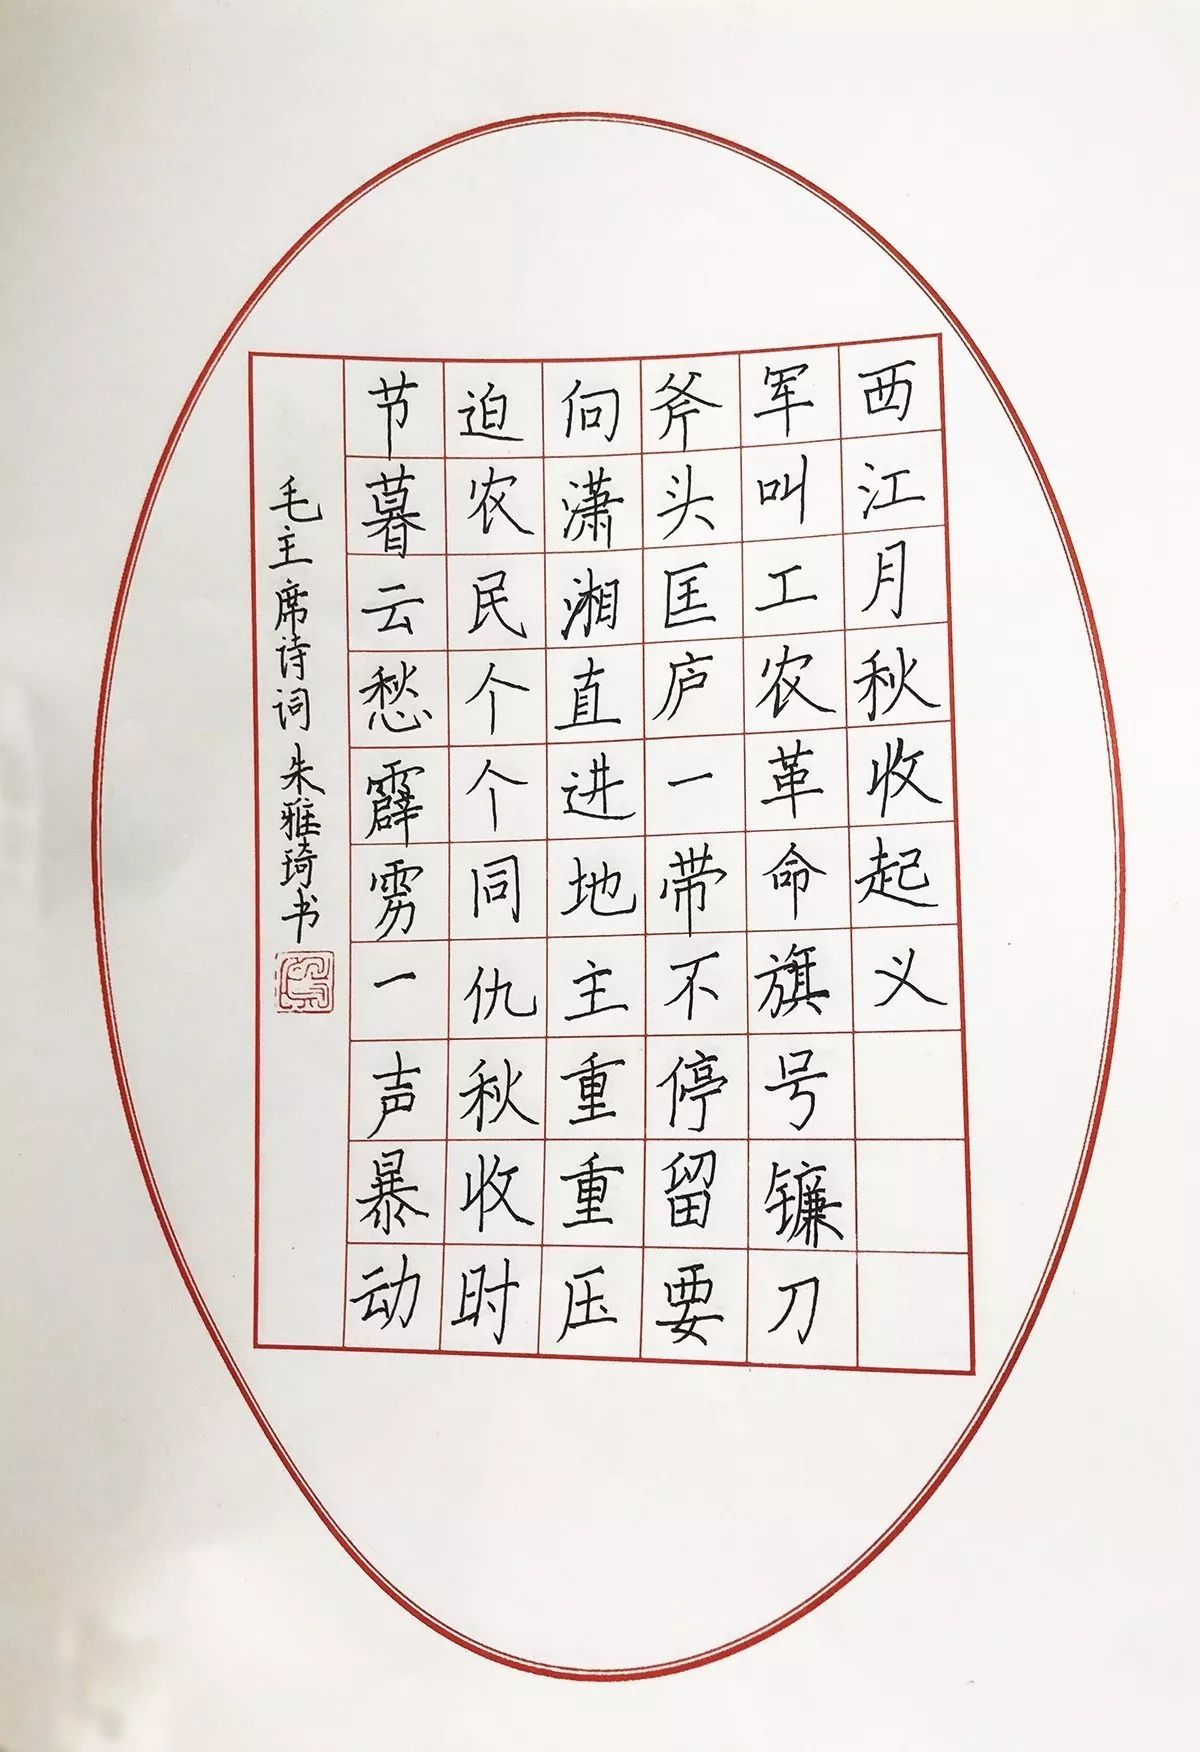 西江月秋收起义
军叫工农革命旗号镰刀
斧头匡庐一带不停留要
向潇湘直进地主重重压
迫农民个个同仇秋收时
节暮云愁霹雳一声暴动
毛主席诗词朱雅琦书